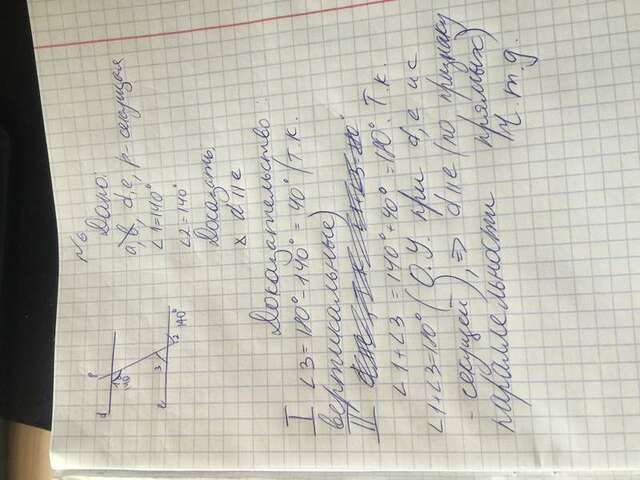 №6
Дано:
a, b, d, e, p-секущая
∠1=140°
∠2=140°
Доказать
d || e
p
d
1
140°
e
3
2
140°
Доказательство:
I ∠3=180°-140°=40° (т.к.
вертикальные)
II
∠1+∠3=140°+40°=180°. Т.к.
∠1+∠3=180° (О.У. при d, e и с
-секущей), => d||e (по признаку
параллельности прямых)
Ч.т.д.